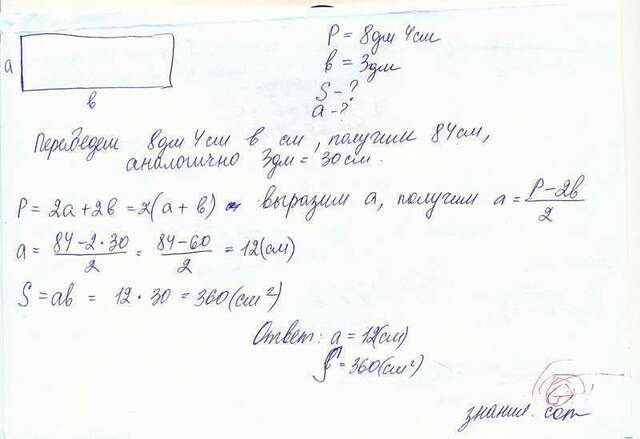 P = 8дм 4см
a
в = 3дм
в
S - ?
a - ?
Переведем 8дм 4см в см, получим 84см,
аналогично 3дм = 30см.
P = 2a + 2в = 2(a + в) выразим a, получим a = (P - 2в)/2
a = (84 - 2 · 30)/2 = (84 - 60)/2 = 12(см)
S = aв = 12 · 30 = 360(см²)
Ответ: a = 12(см)
S = 360(см²)
знание. com